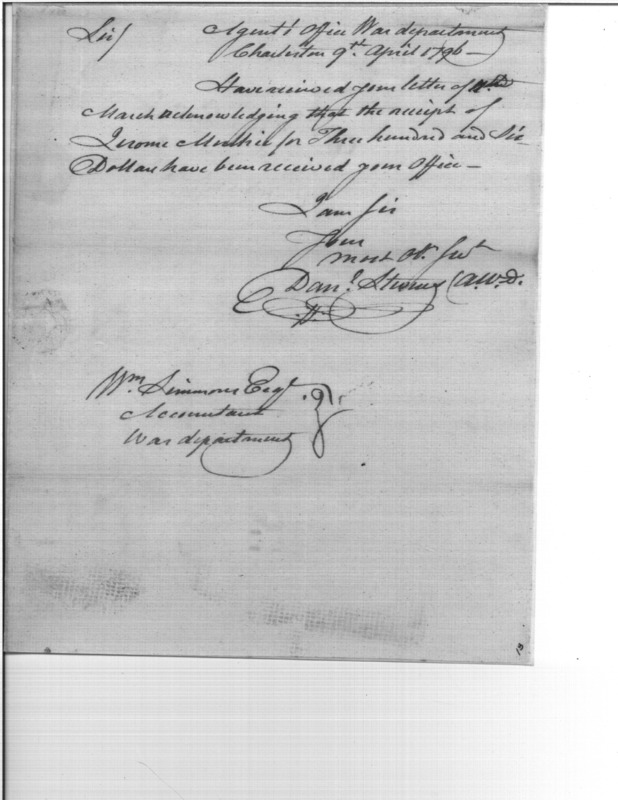 Sir/ Agents Office War department
Charleston 9th. April 1796
Have received your letter of 11th
March acknowledging that the receipt of
Jerome for Three hundred and Six
Dollars have been received your Office
I am Sir
Your
most Ob. Sert
Danl. Stevens A.W.D.
Wm Simmons Esqr
Accountant
War department
13